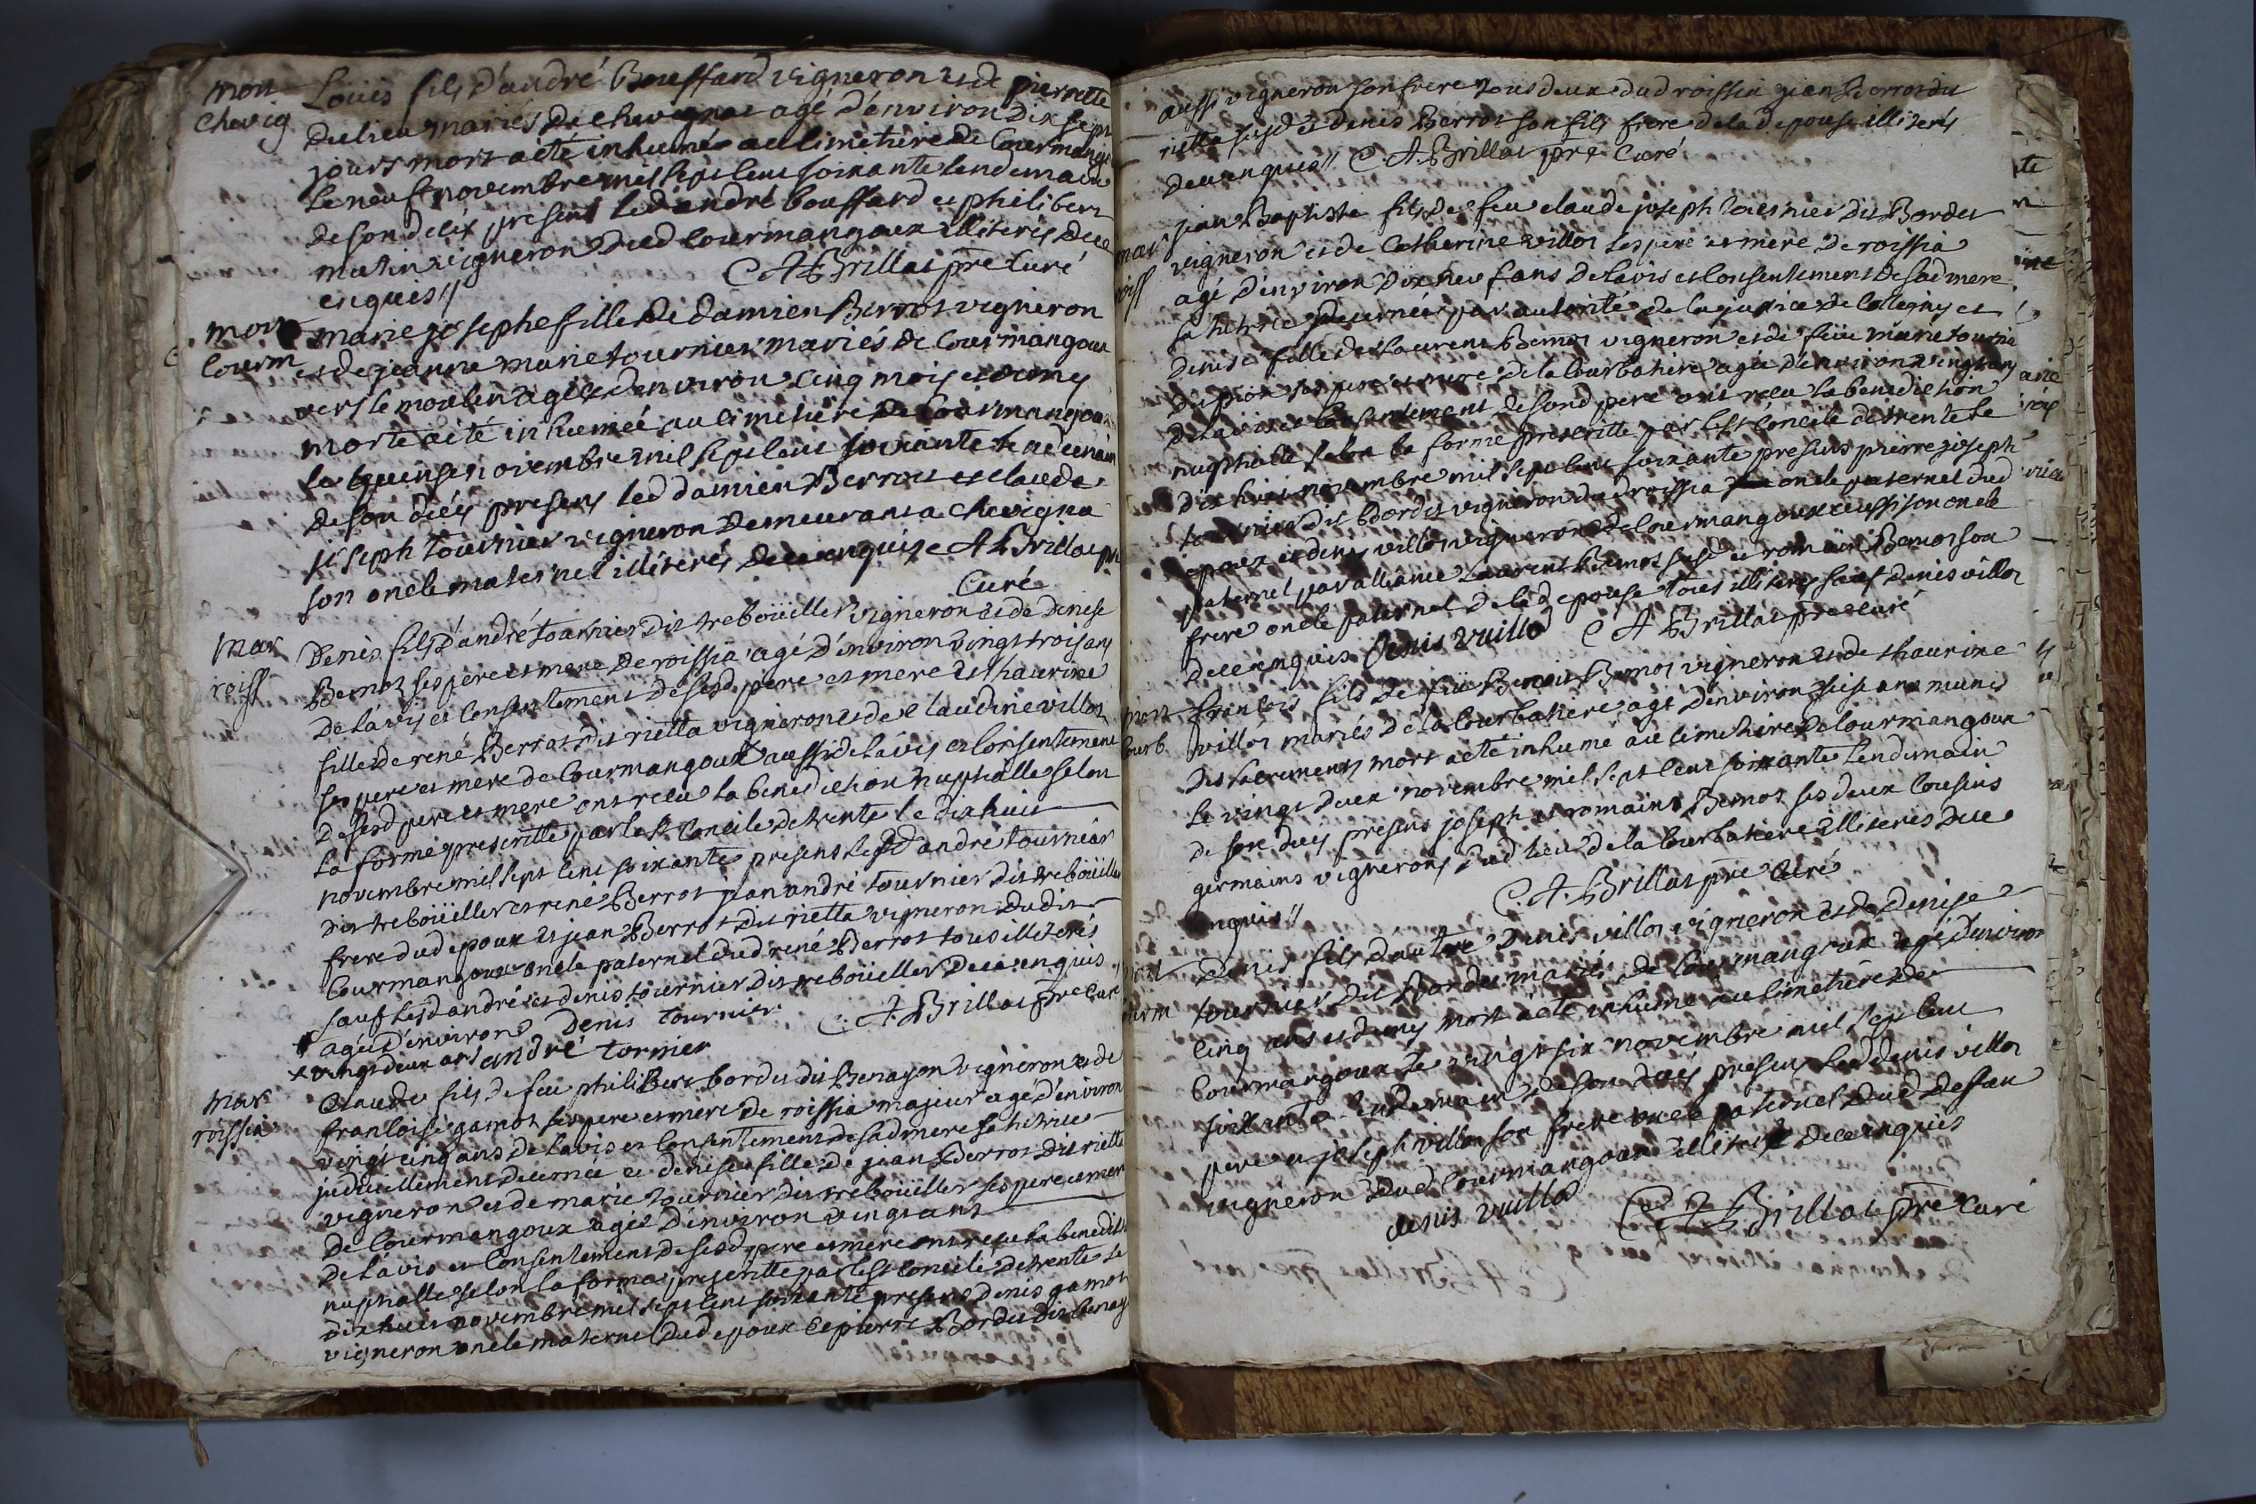 mort
chevig
Louis fils d'andré Bouffard vigneron et de pierrette
dulieu mariés de chevignat agé d'environ dix sept
jours mort a été inhumé au cimetiere de Courmangoux
le neuf novembre mil sept cent soixante lendemain
de son décéz presens led andré bouffard et philibert
matin vigneron dud Courmangoux illiterés de ce
enquis //
C A Brillat pre Curé
mort
Courm
marie josephe fille de damien Berrot vigneron
et de jeanne marie tournier mariés de Courmangoux
vers le moulin agée d'environ cinq mois et demy
morte a été inhumée au cimetiere de Courmangoux
le quinse novembre mil sept cent soixante lendemain
de son décés presens led damien Berrot et claude
joseph tournier vigneron demeurant a chevigna
son oncle maternel illiterés de ce enquis C A Brillat pre
Curé
mar
roiss
Denis fils d'andré tournier dit trebouiller vigneron et de denise
Bernoz ses pere et mere de roissia agé d'environ vingt trois ans
de l'avis et Consentement de sesd pere et mere et thaurine
fille de rené Berrot dit rietta vigneron et de claudine villoz
ses pere et mere de Courmangoux aussi de l'avis et Consentement
de sesd pere et mere ont recu la benediction nuptialle selon
la forme prescritte par le st Concile de trente le dix huit
novembre mil sept cent soixante presens lesd andré tournier
dit trebouiller et rené Berrot jean andré tournier dit trebouiller
frere dud epoux et jean Berrot dit rietta vigneron dudit
Courmangoux oncle paternel dud rené Berrot tous illiterés
sauf lesd andré et denis tournier dit trebouiller de ce enquis //
agée d'environ
vingt deux ans
Denis tournier
andré tornier
C. A. Brillat pre Curé
mar
roissia
Claude fils de feu philibert bordes dit Benayon vigneron et de
francoise gamot ses pere et mere de roissia majeur agé d'environ
vingt cinq ans de l'avis et Consentement de sad mere sa tutrice
judiciellement decernée et denise fille de jean Berrot dit rietta
vigneron et de marie tournier dit trebouiller ses pere et mere
de Courmangoux agée d'environ vingt ans
de l'avis et Consentement de sesd pere et mere ont recu la benedict
nuptialle selon la forme prescritte par le st Concile de trente le
dix huit novembre mil sept cent soixante presens denis gamot
vigneron oncle maternel dud epoux et pierre Bordes dit benay
aussi vigneron son frere tous deux dud roissia jean Berrot dit
rietta susd et denis Berrot son fils frere de lad epouse illiterés
de ce enquis // C. A. Brillat pre Curé
mar
roiss
jean Baptiste fils de feu claude joseph tournier dit Bordet
vigneron et de Catherine villoz ses pere et mere de roissia
agé d'environ dix neuf ans de l'avis et Consentement de sad mere
sa tutrice decernée par autorité de la justice de Coligny et
denise fille de Laurent Bernoz vigneron et de feüe marie tournier
dupion ses pere et mere de la Courbatiere agée d'environ vingt ans
de l'avis et Consentement de sond pere ont recu la benediction
nuptialle selon la forme prescritte par le st Concile de trente le
dix huit novembre mil sept cent soixante presens pierre joseph
tournier dit Bordet vigneron dud roissia oncle paternel dud
epoux et denis villoz vigneron de Courmangoux aussi son oncle
paternel par alliance Laurent Bernoz susd et romain Bernoz son
frere oncle paternel de lad epouse tous illiterés sauf denis villoz
de ce enquis Denis Vuilloz C A Brillat pre curé
mort
Courb
francois fils de feu Benoit Bernoz vigneron et de thaurine
villoz mariés de la Courbatiere agé d'environ seise ans munis
des sacremens mort a été inhumé au cimetiere de Courmangoux
le vingt deux novembre mil sept cent soixante lendemain
de son deces presens joseph et romain Bernoz ses deux Cousins
germains vignerons dud lieu de la Courbatiere illiterés de ce
enquis //
C. A. Brillat pre Curé
mort
Courm
Denis fils d'autre Denis villoz vigneron et de Denise
tournier dit Bordet mariés de Courmangoux agé d'environ
cinq ans et demy mort a été inhumé au cimetiere de
Courmangoux le vingt six novembre mil sept cent
soixante lendemain de son décés presens led denis villoz
pere et joseph villoz son frere oncle paternel dud deffunt
vigneron dud Courmangoux illiteré de ce enquis
denis vuilloz
C. A. Brillat pre Curé